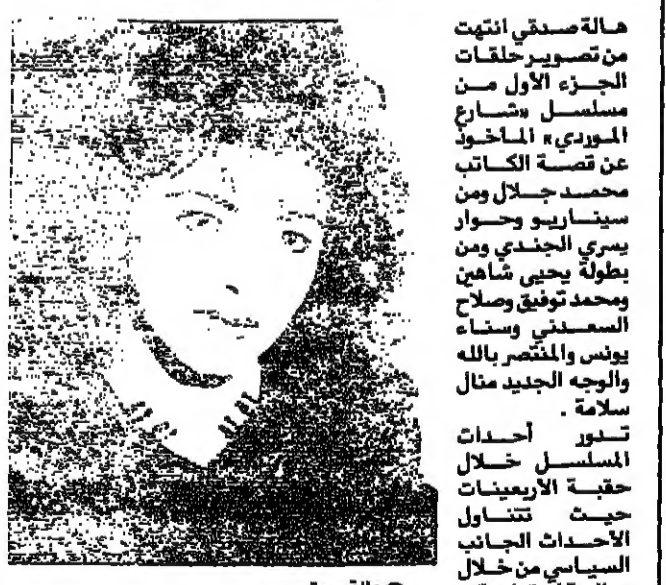 هالة صدقي انتهت
من تصوير حلقات
الجزء الأول من
مسلسل «شارع
الموردي» المأخوذ
عن قصة الكاتب
محمد جلال ومن
سيناريو وحوار
يسري الجندي ومن
بطولة يحيى شاهين
ومحمد توفيق وصلاح
السعدني وسناء
يونس والمنتصر بالله
والوجه الجديد منال
سلامة .
تدور أحداث
المسلسل خلال
حقبة الاربعينات
حيث تتناول
الأحداث الجانب
السياسي من خلال